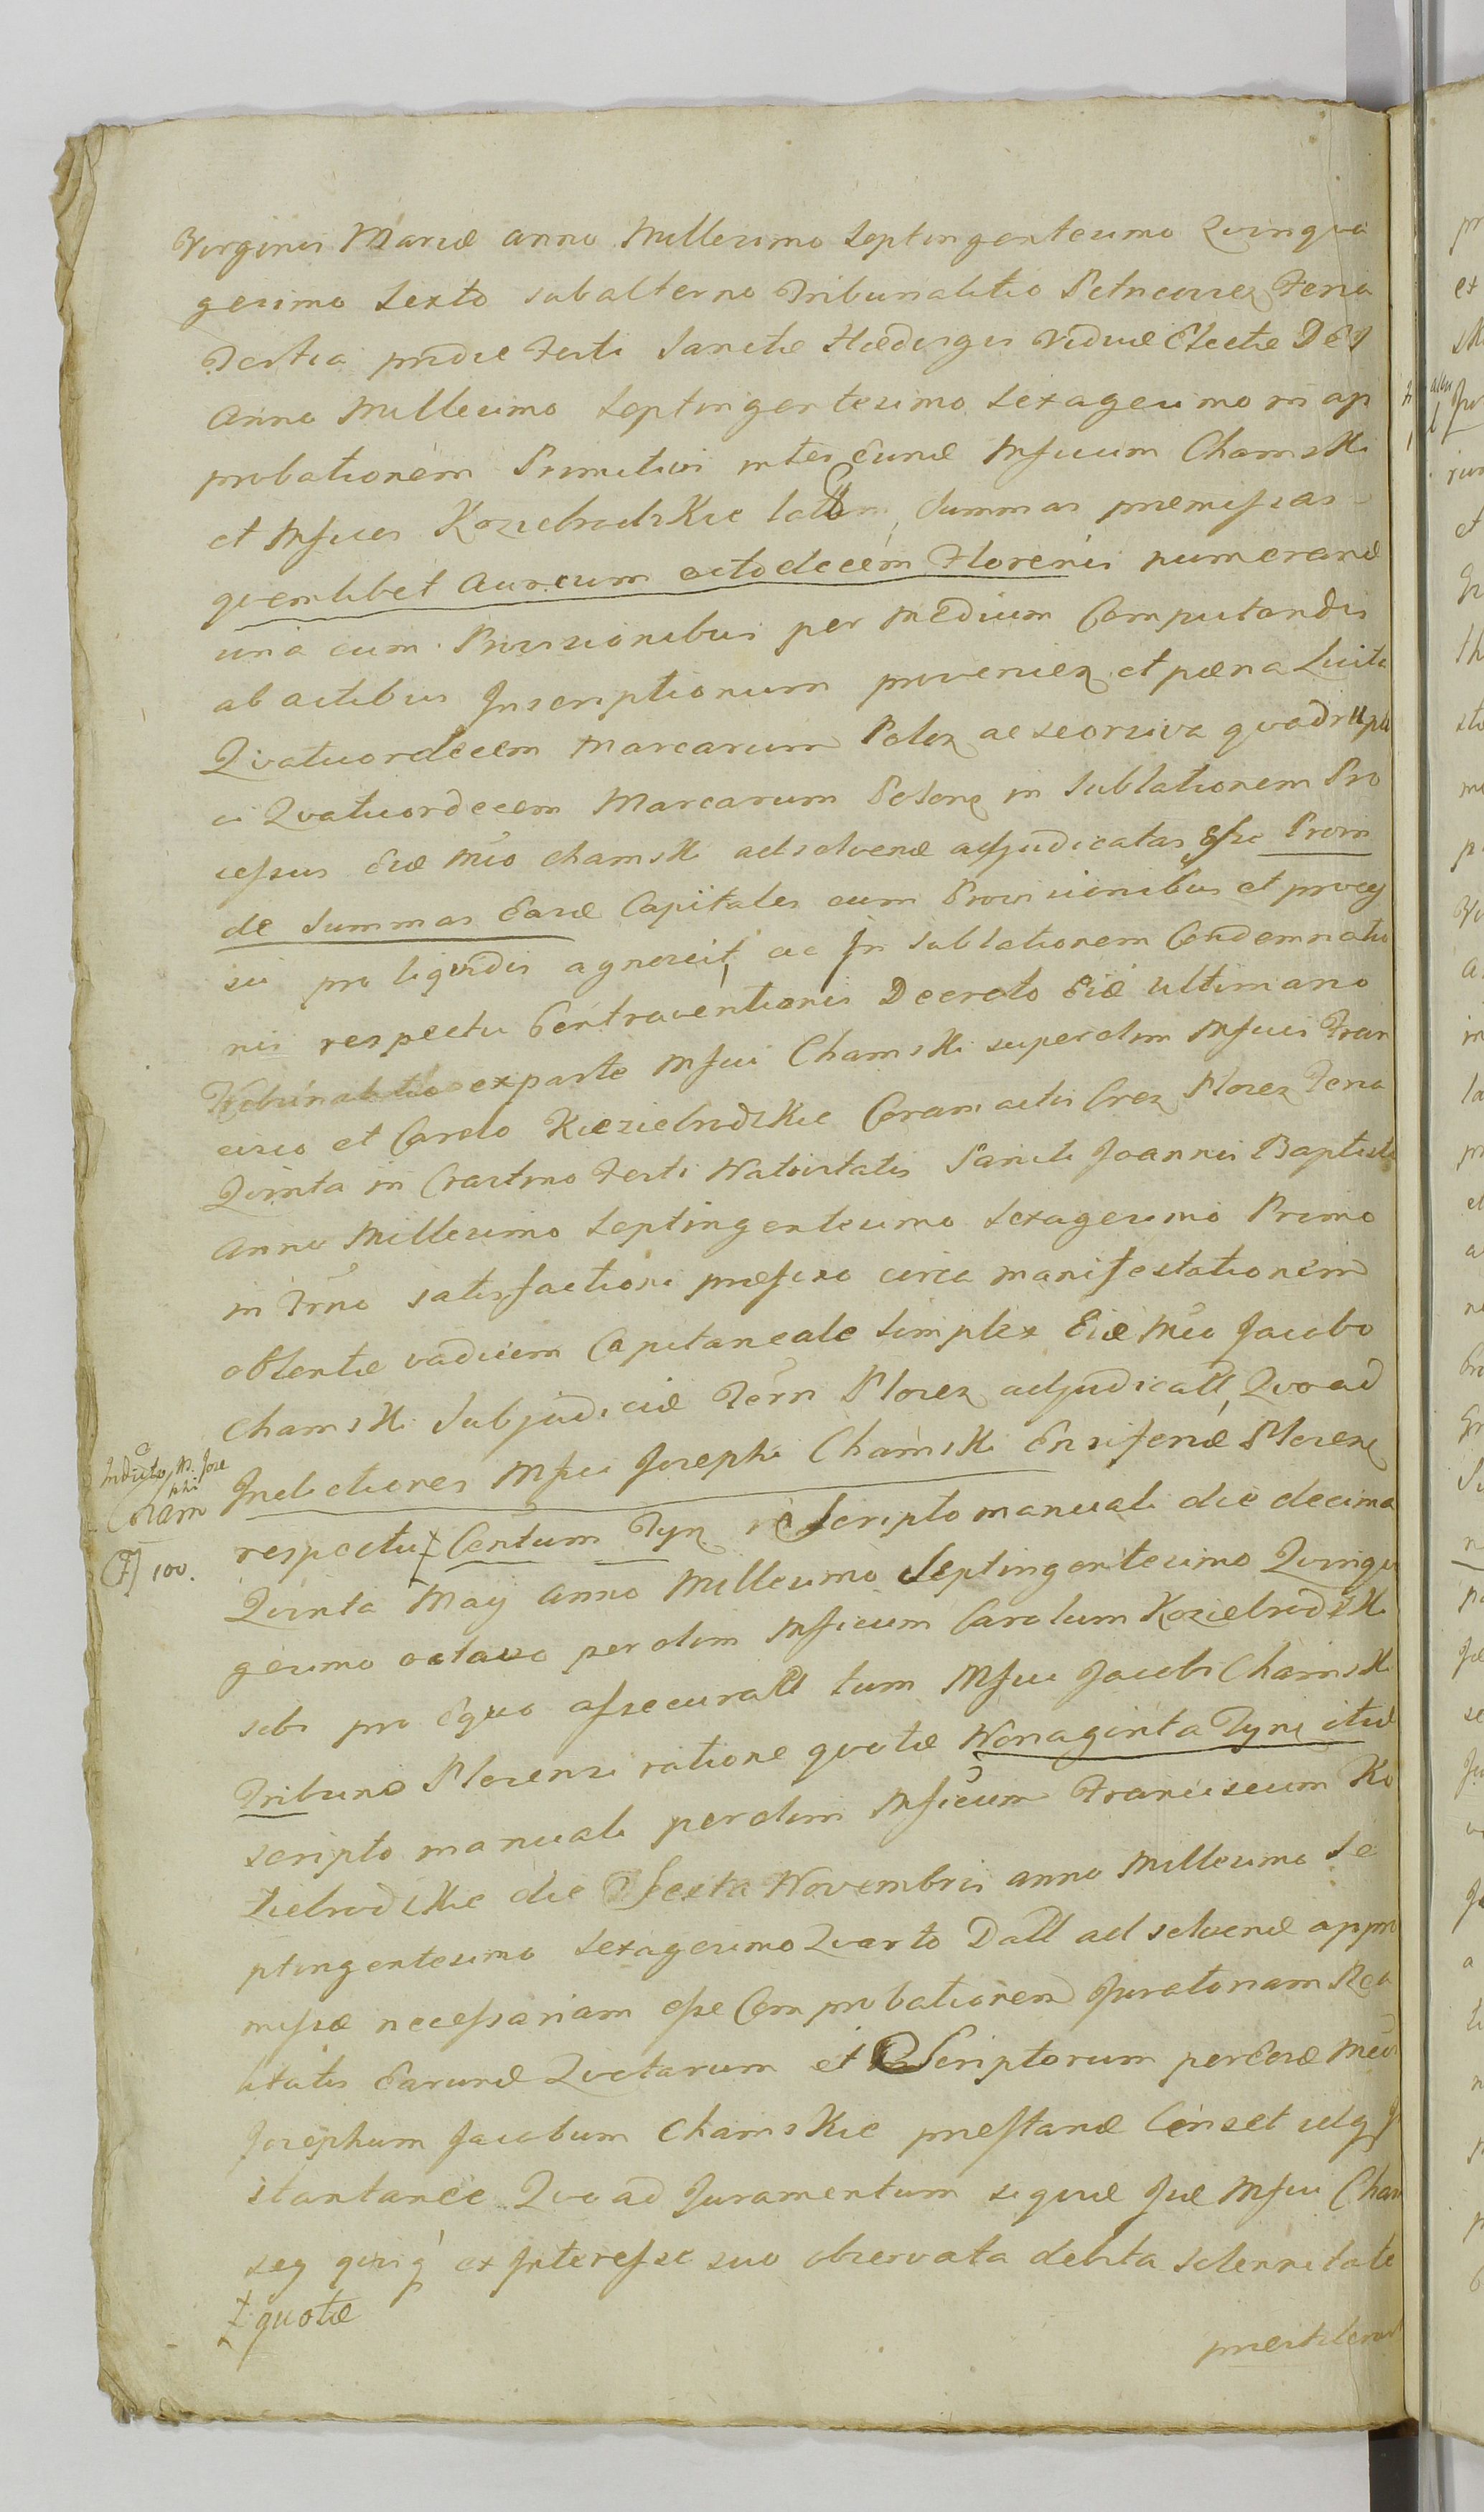 Virginis Mariæ anno Millesimo Septingentesimo Qvinqva
gesimo Sexto subalterno Tribunalitio Petricoviez Feria
Tertia pridie Festi Sanctæ Hædvigis Viduæ Electæ DEJ
Anno Millesimo Septingentesimo Sexagesimo in ap
probationem Primitivi inter Eund Mficum Chamski
et Mficos Koziebrodskie latum, Summas præmissas
qvemlibet Aureum octodecem Florenis numerand
una cum Provisionibus per medium Computandis
ab actibus Inscriptionum provenien et pæna Luita
Qvatuordecem Marcarum Polon ac seorsiva qvadrupli
ci Qvatuordecem Marcarum Polon in Sublationem Pro
cessus Eid Mco Chamski adsolvend adjudicatas Esse Provin
de Summas Easd Capitales cum Provisionibus et proces
su pro liqvidis agnoscit, ac In Sublationem Condemnatio
nis respectu Contraventionis Decreto Eid ultimano
Tribunalitio exparte Mfici Chamski super olim Mficis Fran
cisco et Carolo Koziebrodzkie Coram actis Cren Plocen Feria
Qvinta in Crastino Festi Nativitatis Sancti Joannis Baptistæ
Anno Millesimo Septingentesimo Sexagesimo Primo
in Trno satisfactioni præfixo circa manifestationem
obtentæ vadium Capitaneale Simplex Eid Mco Jacobo
Chamski Subjudicid Terr Plocen adjudicatt, Qvoad
Inductiones Mfici Josephi Chamski Ensiferid Plocen
respectu Centum Tyn Scripto manuali die decima
Qvinta May Anno Millesimo Septingentesimo Qvinqva
gesimo octavo per olim Mficum Carolum Koziebrodzki
sibi pro Eqvo assecuratt tum Mfici Jacobi Chamski
Tribuno Plocensi ratione qvotæ Nonaginta Tyn itid
scripto manuali per olim Mficum Franciscum Ko
ziebrodzkie die Sexta Novembris anno Millesimo Se
ptingentesimo Sexagesimo Qvarto Datt ad solvend appro
missæ necessariam esse Comprobationem Juratoriam Rea
litatis Earund Qvotarum et Scriptorum per Eosd Mcos
Josephum Jacobum Chamskie præstand Censet idq I
stantanee Qvoad Juramentum siqvid Jid Mfici Cham
scy qvisq ex Interesse suo observata debita solennitate
‡ quotæ
præstiterint
Inducta M. Jose
phi
Cham
(F) 100.